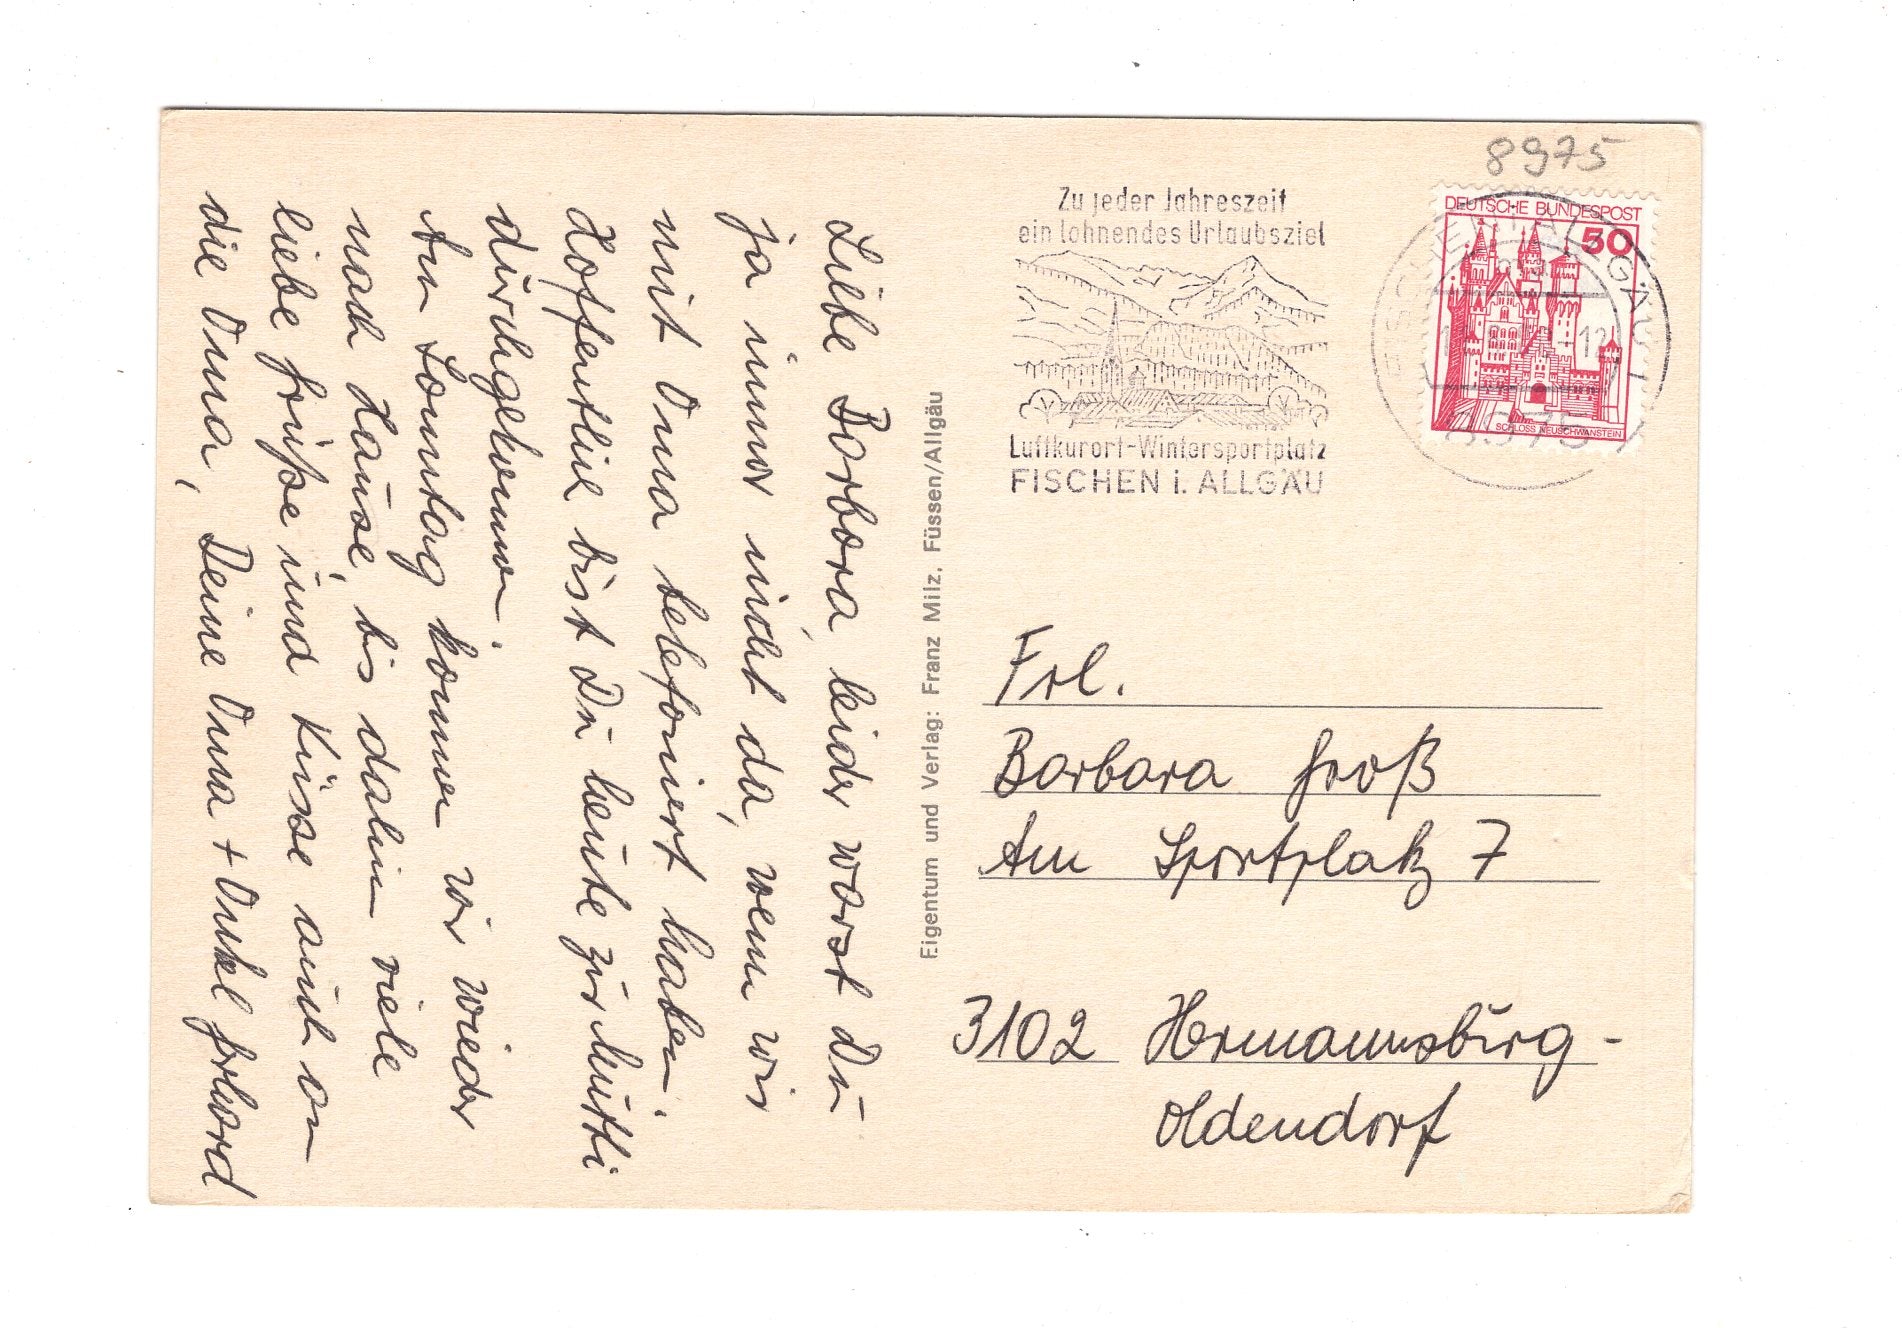 Liebe Barbara, leider warst Du
ja immer nicht da, wenn wir
mit Oma telefoniert haben.
Hoffentlich bist Du heute zur Mutti
durchgekommen.
Am Sonntag kommen wir wieder
nach Hause, bis dahin viele
liebe Grüße und Küsse auch an
die Oma, Deine Oma + Onkel Gerhard
Eigentum und Verlag: Franz Milz, Füssen/Allgäu
8975
Zu jeder Jahreszeit
ein lohnendes Urlaubsziel
Luftkurort-Wintersportplatz
FISCHEN i. ALLGÄU
DEUTSCHE BUNDESPOST
50
SCHLOSS NEUSCHWANSTEIN
FISCHEN i. ALLGÄU 1
-12
8975
Frl.
Barbara Groß
Am Sportplatz 7
3102 Hermannsburg-
Oldendorf